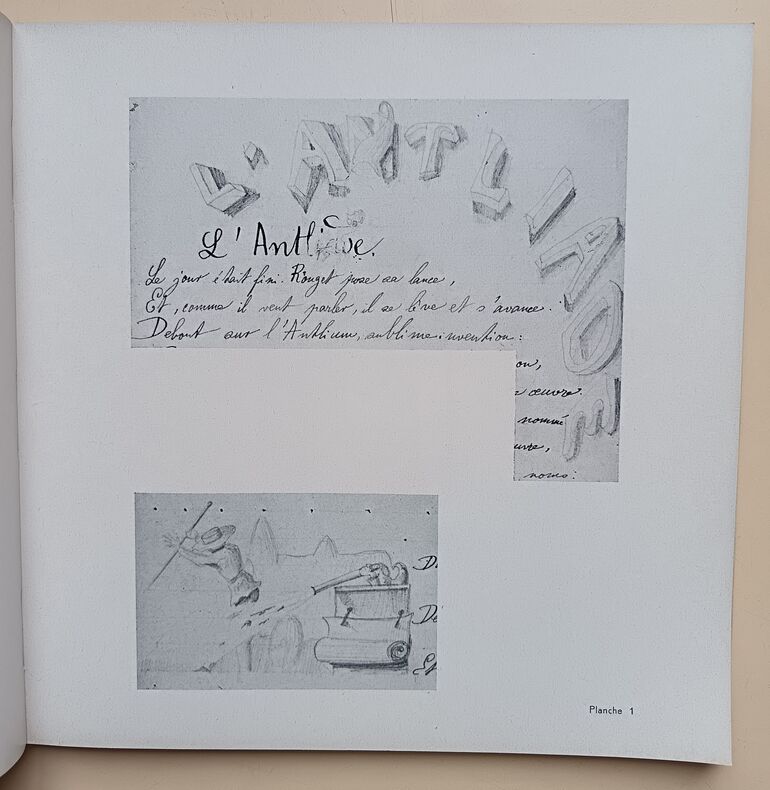 L'ANTLIADE
L'Antliade.
Le jour était fini. Rouget pose sa lance,
Et, comme il veut parler, il se lève et s'avance.
Debout sur l'Antlium, sublime invention:
on,
œuvre.
nommé
uvre,
nous:
D
Dé
Et
Planche 1